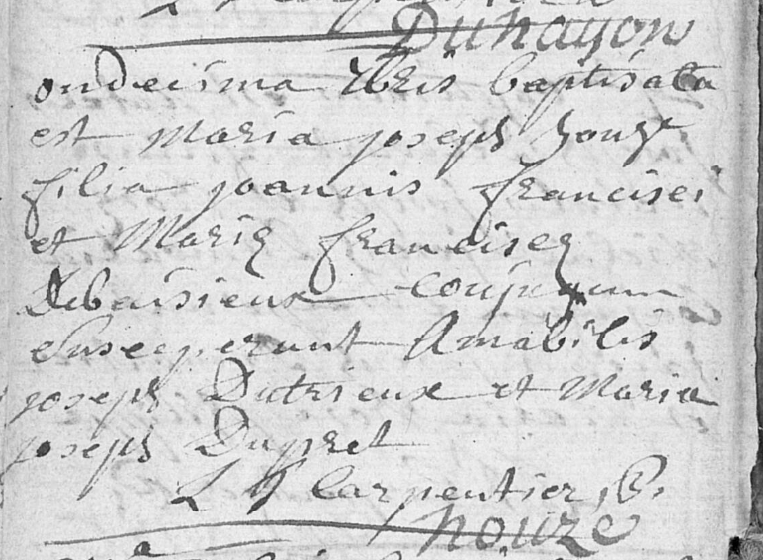 Duhayon
ondecima Xbris baptisata
est Maria joseph houze
filia joannis francisci
et Mariæ franciscæ
Debaisieux conjugum
Susceperunt Amabilis
joseph Dutrieux et Maria
joseph Dupret
L J Carpentier
houze